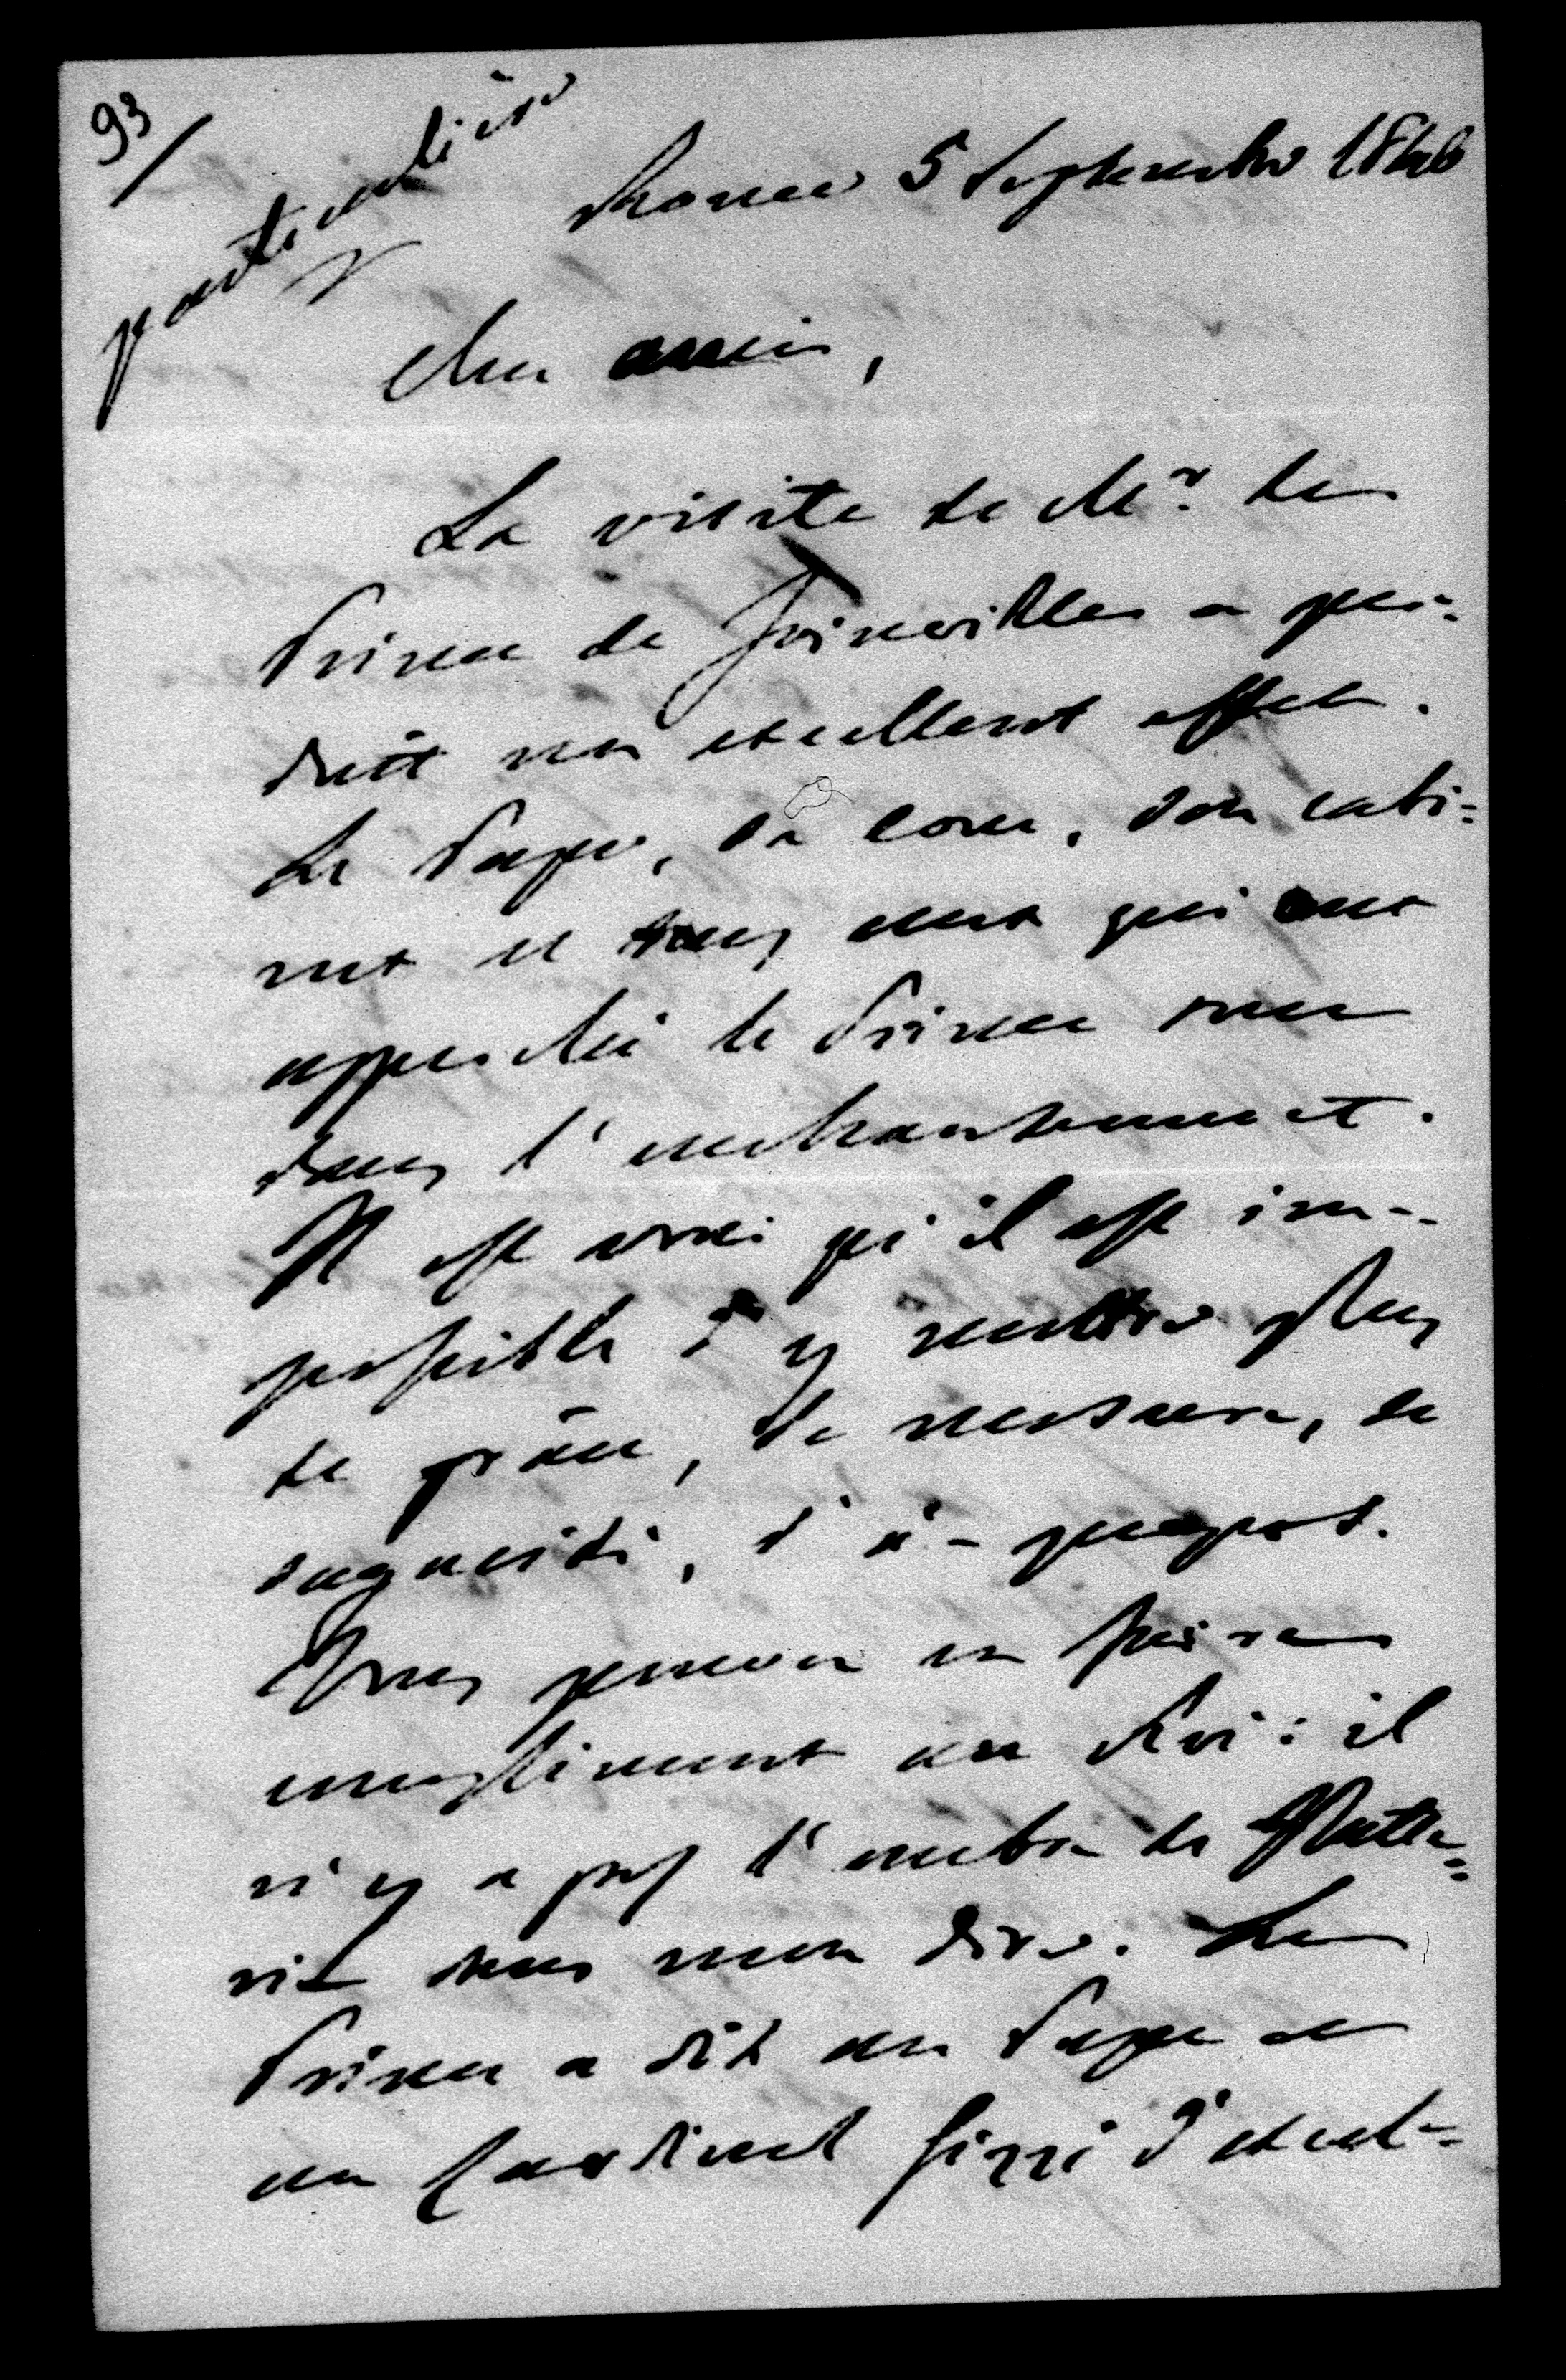 93/
particulière
Rome 5 Septembre 1846
Cher ami,
La visite de Mr. le
Prince de Joinville a pro-
duit un excellent effet.
Le Pape, sa cour, son cabi-
net et tous ceux qui ont
approché le Prince sont
dans l'enchantement.
Il est vrai qu'il est im-
possible d'y mettre plus
de grâce, de mesure, de
sagacité, d'à-propos.
Vous pouvez en faire
compliment au Roi: il
n'y a pas l'ombre de flatte-
rie dans mon dire. Le
Prince a dit au Pape et
au Cardinal Gizzi d'excel-